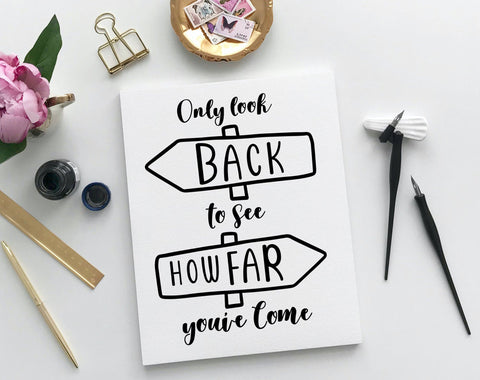 Only look
BACK
to see
HOW FAR
you've Come